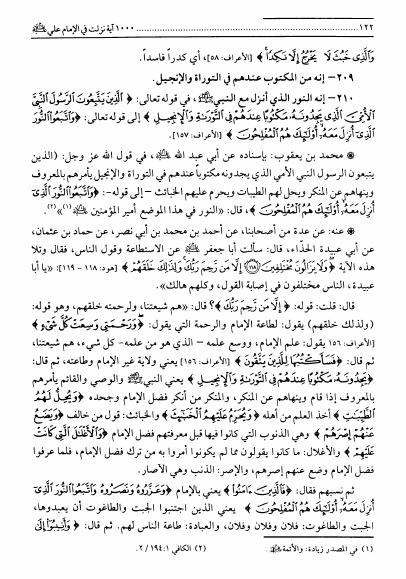 ١٢٢ ١٠٠٠ آية نزلت في الإمام علي
﴿وَالَّذِي خَبُثَ لَا يَخْرُجُ إِلَّا نَكِدًا﴾ [الأعراف: ٥٨]، أي كدراً فاسداً.
٢٠٩- إنه من المكتوب عندهم في التوراة والإنجيل.
٢١٠- إنه النور الذي أنزل مع النبي، في قوله تعالى: ﴿الَّذِينَ يَتَّبِعُونَ الرَّسُولَ النَّبِيَّ
الْأُمِّيَّ الَّذِي يَجِدُونَهُ مَكْتُوبًا عِنْدَهُمْ فِي التَّوْرَاةِ وَالْإِنْجِيلِ﴾ إلى قوله تعالى: ﴿وَاتَّبَعُوا النُّورَ
الَّذِي أُنْزِلَ مَعَهُ أُولَئِكَ هُمُ الْمُفْلِحُونَ﴾ [الأعراف: ١٥٧].
* محمد بن يعقوب: بإسناده عن أبي عبد الله، في قول الله عز وجل: (الذين
يتبعون الرسول النبي الأمي الذي يجدونه مكتوباً عندهم في التوراة والإنجيل يأمرهم بالمعروف
وينهاهم عن المنكر ويحل لهم الطيبات ويحرم عليهم الخبائث -إلى قوله-: ﴿وَاتَّبَعُوا النُّورَ الَّذِي
أُنْزِلَ مَعَهُ أُولَئِكَ هُمُ الْمُفْلِحُونَ﴾، قال: «النور في هذا الموضع أمير المؤمنين (١)»(٢).
* عنه: عن عدة من أصحابنا، عن أحمد بن محمد بن أبي نصر، عن حماد بن عثمان،
عن أبي عبيدة الحذّاء، قال: سألت أبا جعفر عن الاستطاعة وقول الناس، فقال وتلا
هذه الآية ﴿وَلَا يَزَالُونَ مُخْتَلِفِينَ (١١٨) إِلَّا مَنْ رَحِمَ رَبُّكَ وَلِذَلِكَ خَلَقَهُمْ﴾ [هود: ١١٨ - ١١٩]: «يا أبا
عبيدة، الناس مختلفون في إصابة القول، وكلهم هالك».
قال: قلت: قوله: ﴿إِلَّا مَنْ رَحِمَ رَبُّكَ﴾؟ قال: «هم شيعتنا، ولرحمته خلقهم، وهو قوله:
(ولذلك خلقهم) يقول: لطاعة الإمام والرحمة التي يقول: ﴿وَرَحْمَتِي وَسِعَتْ كُلَّ شَيْءٍ﴾
[الأعراف: ١٥٦] يقول: علم الإمام، ووسع علمه - الذي هو من علمه- كل شيء، هم شيعتنا،
ثم قال: ﴿فَسَأَكْتُبُهَا لِلَّذِينَ يَتَّقُونَ﴾ [الأعراف: ١٥٦] يعني ولاية غير الإمام وطاعته، ثم قال:
﴿يَجِدُونَهُ مَكْتُوبًا عِنْدَهُمْ فِي التَّوْرَاةِ وَالْإِنْجِيلِ﴾ يعني النبي والوصي والقائم يأمرهم
بالمعروف إذا قام وينهاهم عن المنكر، والمنكر من أنكر فضل الإمام وجحده ﴿وَيُحِلُّ لَهُمُ
الطَّيِّبَاتِ﴾ أخذ العلم من أهله ﴿وَيُحَرِّمُ عَلَيْهِمُ الْخَبَائِثَ﴾ والخبائث: قول من خالف ﴿وَيَضَعُ
عَنْهُمْ إِصْرَهُمْ﴾ وهي الذنوب التي كانوا فيها قبل معرفتهم فضل الإمام ﴿وَالْأَغْلَالَ الَّتِي كَانَتْ
عَلَيْهِمْ﴾ والأغلال: ما كانوا يقولون مما لم يكونوا أمروا به من ترك فضل الإمام، فلما عرفوا
فضل الإمام وضع عنهم إصرهم، والإصر: الذنب وهي الآصار.
ثم نسبهم فقال: ﴿فَالَّذِينَ آمَنُوا﴾ يعني بالإمام ﴿وَعَزَّرُوهُ وَنَصَرُوهُ وَاتَّبَعُوا النُّورَ الَّذِي
أُنْزِلَ مَعَهُ أُولَئِكَ هُمُ الْمُفْلِحُونَ﴾ يعني الذين اجتنبوا الجبت والطاغوت أن يعبدوها،
الجبت والطاغوت: فلان وفلان وفلان، والعبادة: طاعة الناس لهم. ثم قال: ﴿وَأَنِيبُوا إِلَى
(١) في المصدر زيادة: والأئمة. (٢) الكافي ١: ١٩٤/ ٢.